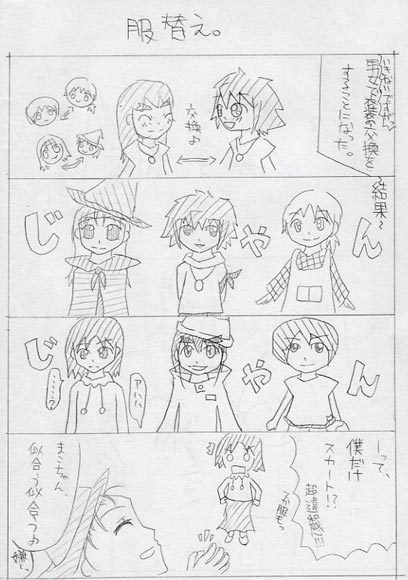 服替え。
いきなりですが、
男女で衣装の交換を
することになった。
交換よ
～結果～
じ
ゃ
や
ん
じ
や
ん
アハハ
…って、
僕だけ
スカート!?
超違和感!!!
まこちゃん、
似合う似合うよ
嫌ー